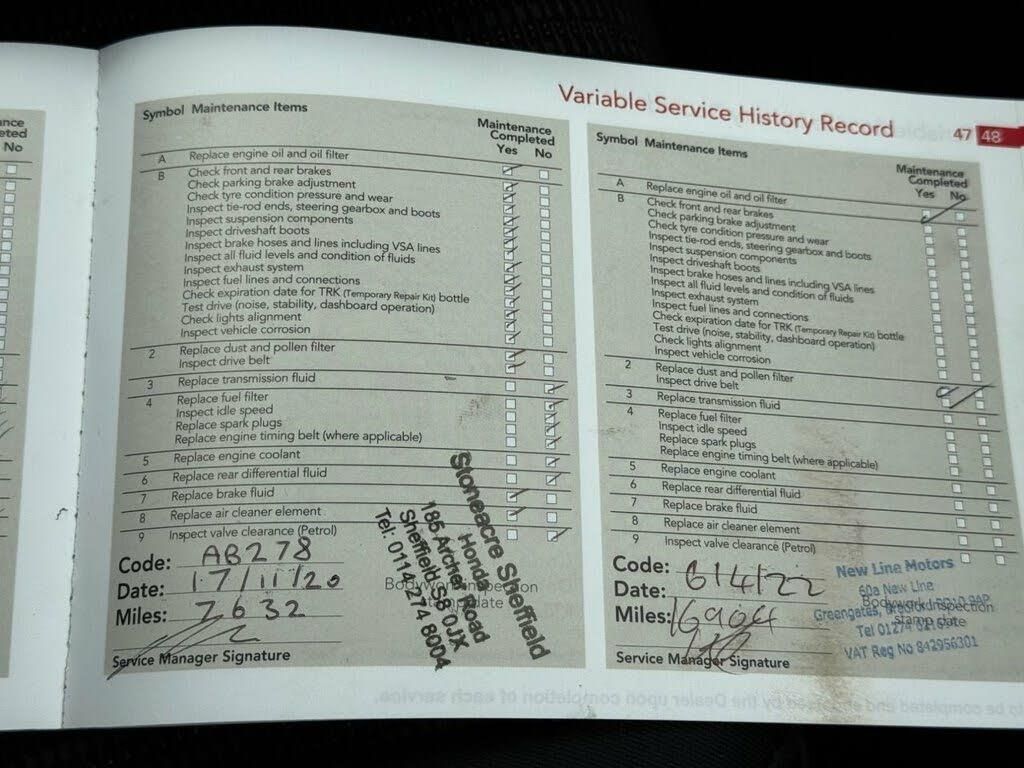 Variable Service History Record
47 48
Symbol Maintenance Items
Maintenance
Completed
Yes No
A Replace engine oil and oil filter
B Check front and rear brakes
Check parking brake adjustment
Check tyre condition pressure and wear
Inspect tie-rod ends, steering gearbox and boots
Inspect suspension components
Inspect driveshaft boots
Inspect brake hoses and lines including VSA lines
Inspect all fluid levels and condition of fluids
Inspect exhaust system
Inspect fuel lines and connections
Check expiration date for TRK (Temporary Repair Kit) bottle
Test drive (noise, stability, dashboard operation)
Check lights alignment
Inspect vehicle corrosion
2 Replace dust and pollen filter
Inspect drive belt
3 Replace transmission fluid
4 Replace fuel filter
Inspect idle speed
Replace spark plugs
Replace engine timing belt (where applicable)
5 Replace engine coolant
6 Replace rear differential fluid
7 Replace brake fluid
8 Replace air cleaner element
9 Inspect valve clearance (Petrol)
Code: AB278
Date: 17/11/20
Miles: 7632
Service Manager Signature
Stoneacre Sheffield
Honda
185 Archer Road
Sheffield S8 0JX
Tel: 0114 274 8004
Bodywork inspection
stamp date
Symbol Maintenance Items
Maintenance
Completed
Yes No
A Replace engine oil and oil filter
B Check front and rear brakes
Check parking brake adjustment
Check tyre condition pressure and wear
Inspect tie-rod ends, steering gearbox and boots
Inspect suspension components
Inspect driveshaft boots
Inspect brake hoses and lines including VSA lines
Inspect all fluid levels and condition of fluids
Inspect exhaust system
Inspect fuel lines and connections
Check expiration date for TRK (Temporary Repair Kit) bottle
Test drive (noise, stability, dashboard operation)
Check lights alignment
Inspect vehicle corrosion
2 Replace dust and pollen filter
Inspect drive belt
3 Replace transmission fluid
4 Replace fuel filter
Inspect idle speed
Replace spark plugs
Replace engine timing belt (where applicable)
5 Replace engine coolant
6 Replace rear differential fluid
7 Replace brake fluid
8 Replace air cleaner element
9 Inspect valve clearance (Petrol)
Code:
Date: 6/4/22
Miles: 16904
Service Manager Signature
New Line Motors
60a New Line
Greengates,
Tel 01274
VAT Reg No 842956301
Bodywork inspection
stamp date